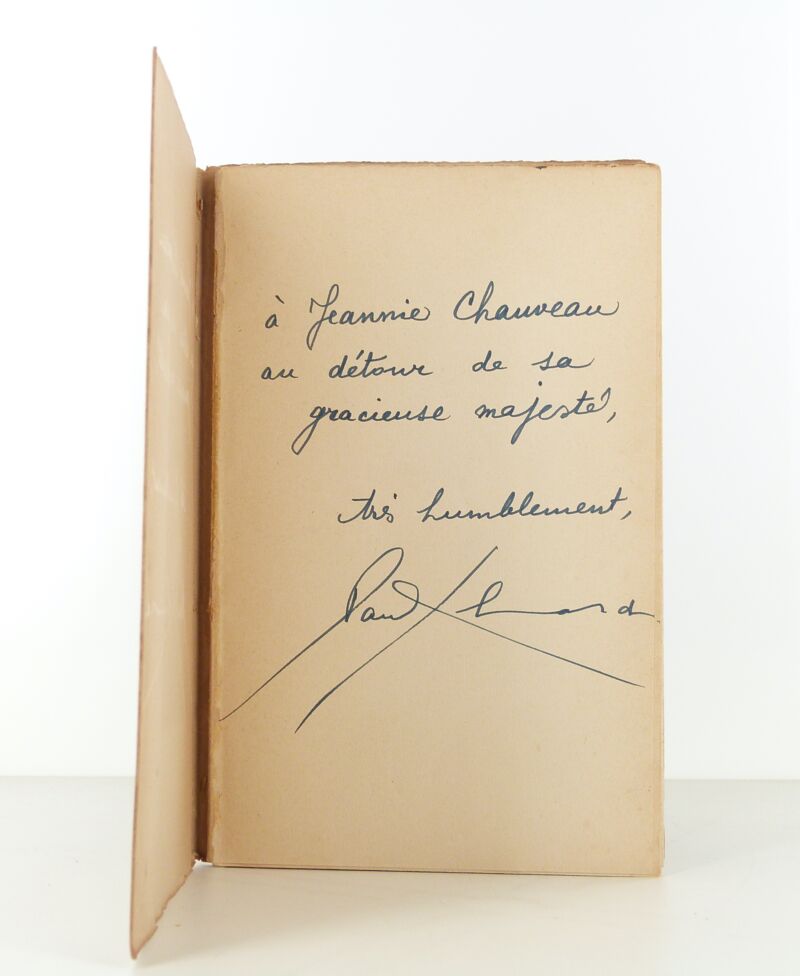 à Jeannie Chauveau
au détour de sa
gracieuse majesté,
très humblement,
Paul